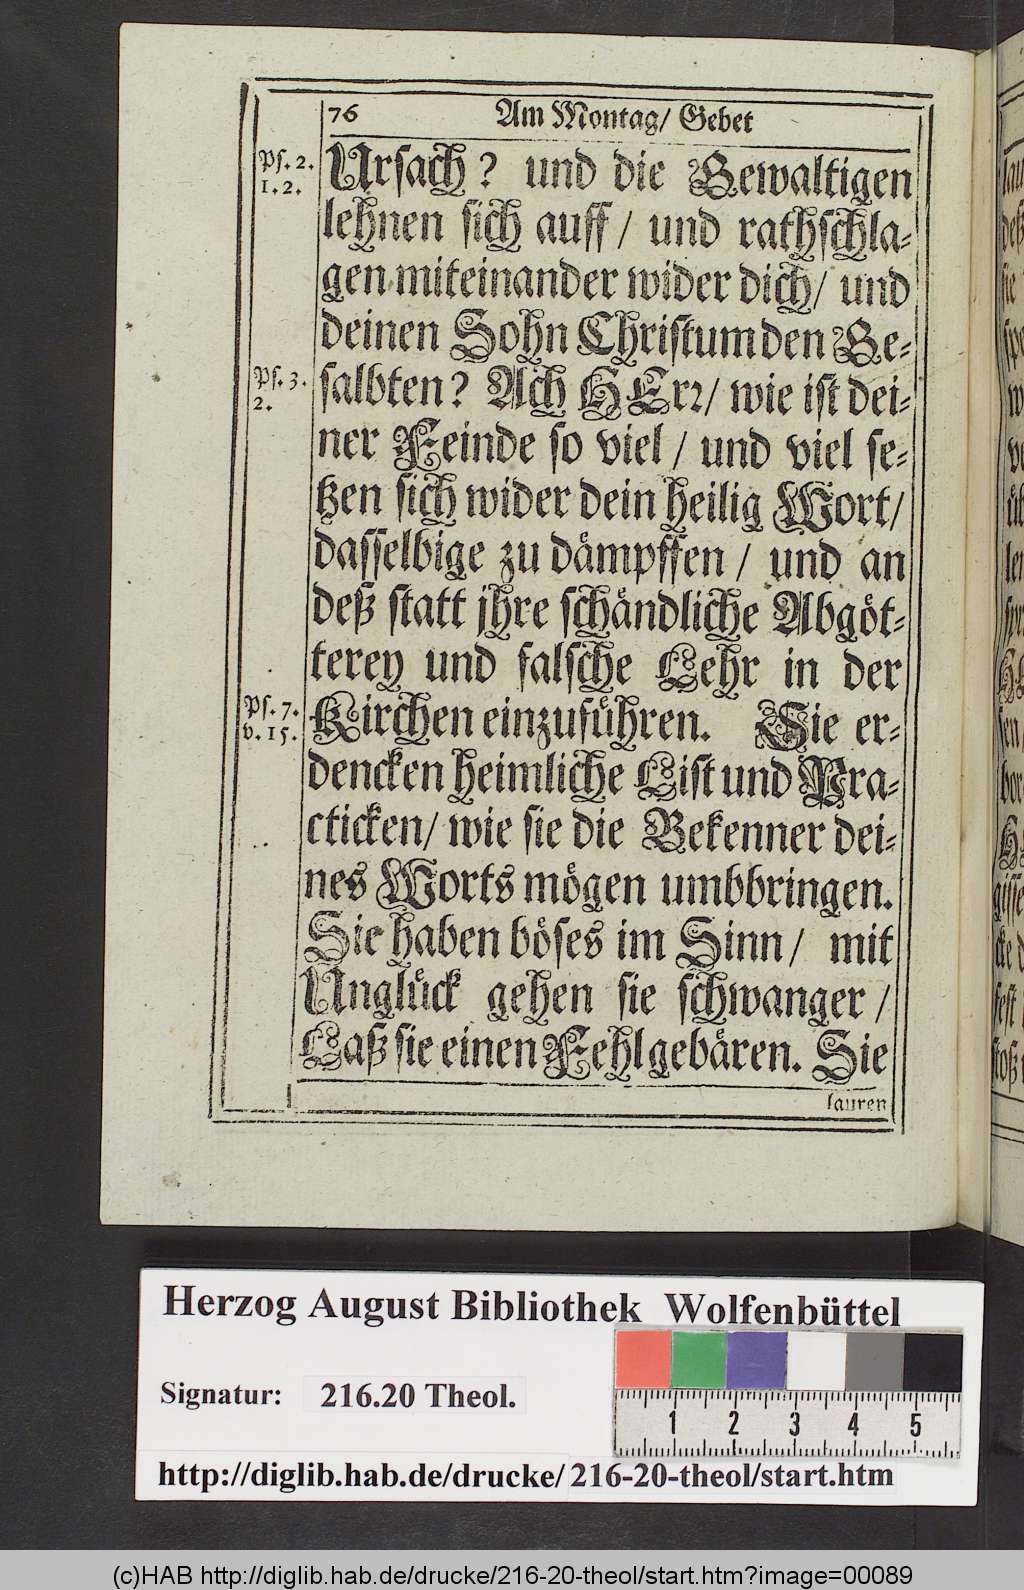 76 Am Montag/ Gebet
Ps. 2.
1. 2.
Ursach? und die Gewaltigen
lehnen sich auff / und rathschla-
gen miteinander wider dich/ und
deinen Sohn Christum den Ge-
Ps. 3.
2.
salbten? Ach HErr/ wie ist dei-
ner Feinde so viel / und viel se-
tzen sich wider dein heilig Wort/
dasselbige zu dämpffen / und an
deß statt jhre schändliche Abgöt-
terey und falsche Lehr in der
Ps. 7.
v. 15.
Kirchen einzuführen. Sie er-
dencken heimliche List und Pra-
cticken/ wie sie die Bekenner dei-
nes Worts mögen umbbringen.
Sie haben böses im Sinn / mit
Unglück gehen sie schwanger /
Laß sie einen Fehl gebären. Sie
lauren
Herzog August Bibliothek Wolfenbüttel
Signatur: 216.20 Theol.
1 2 3 4 5
http://diglib.hab.de/drucke/ 216-20-theol/start.htm
(c)HAB http://diglib.hab.de/drucke/216-20-theol/start.htm?image=00089